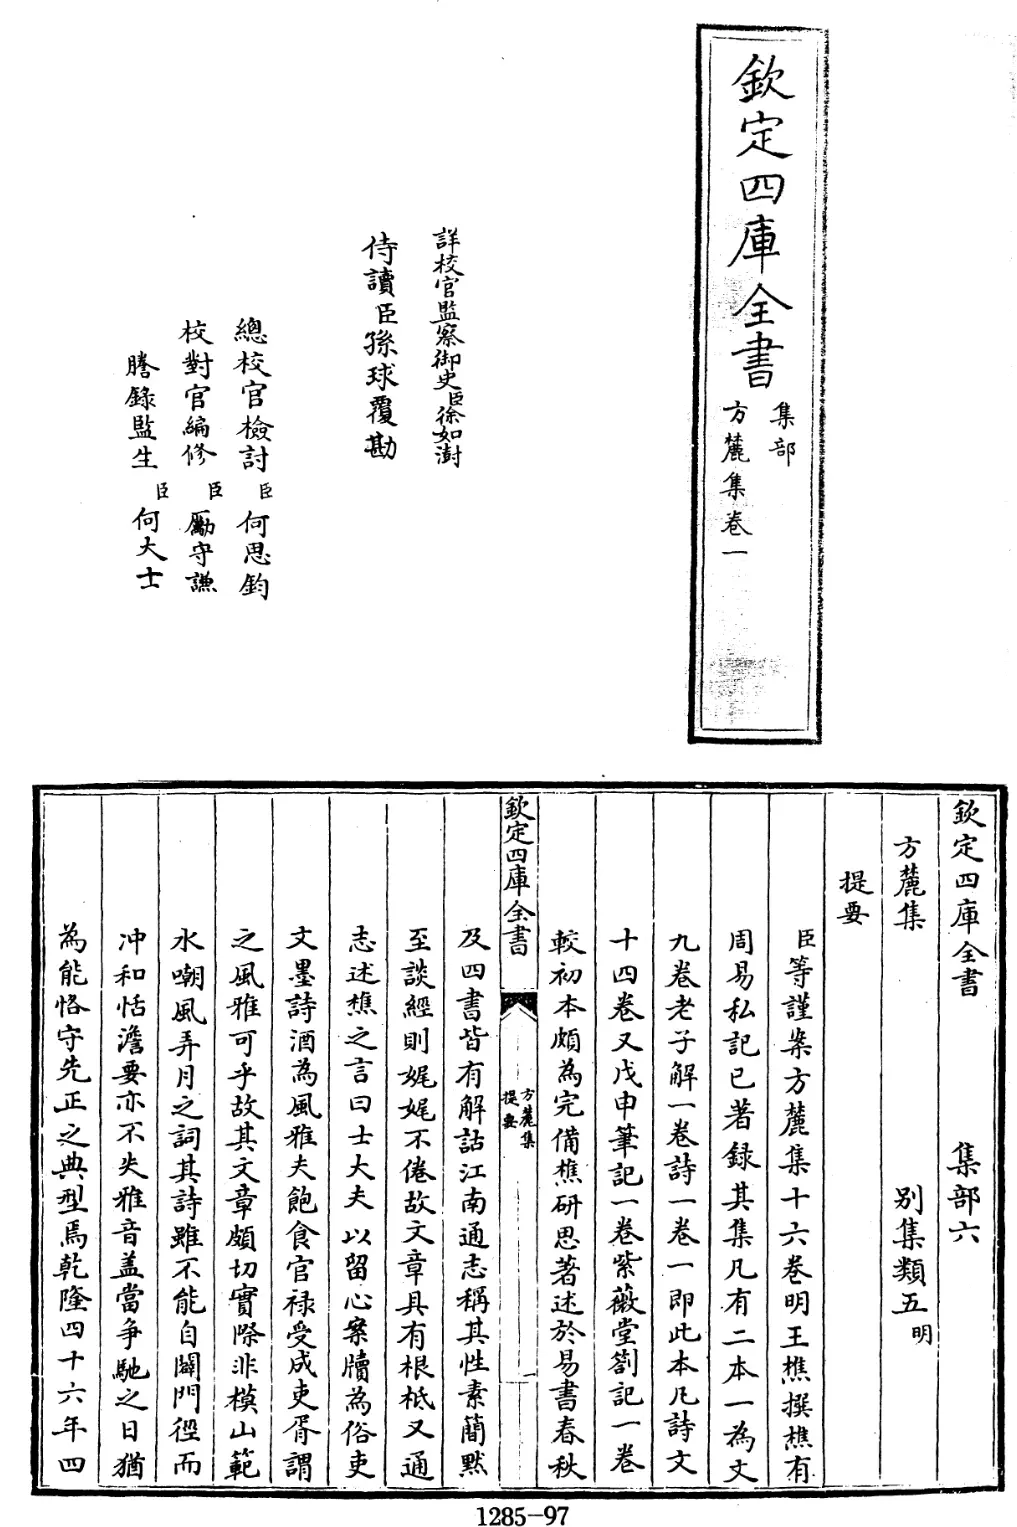 欽定四庫全書
集部
方麓集卷一
詳校官監察御史臣徐如澍
侍讀臣孫球覆勘
總校官檢討臣何思鈞
校對官編修臣勵守謙
謄錄監生臣何大士
欽定四庫全書 集部六
方麓集 别集類五明
提要
臣等謹案方麓集十六卷明王樵撰樵有
周易私記已著録其集凡有二本一為文
九卷老子解一卷詩一卷一即此本凡詩文
十四卷又戊申筆記一卷紫薇堂劄記一卷
較初本頗為完備樵研思著述於易書春秋
欽定四庫全書
方麓集
提要
一
及四書皆有解詁江南通志稱其性素簡默
至談經則娓娓不倦故文章具有根柢又通
志述樵之言曰士大夫以留心案牘為俗吏
文墨詩酒為風雅夫飽食官禄受成吏胥謂
之風雅可乎故其文章頗切實際非模山範
水嘲風弄月之詞其詩雖不能自闢門徑而
冲和恬澹要亦不失雅音蓋當爭馳之日猶
為能恪守先正之典型焉乾隆四十六年四
1285-97